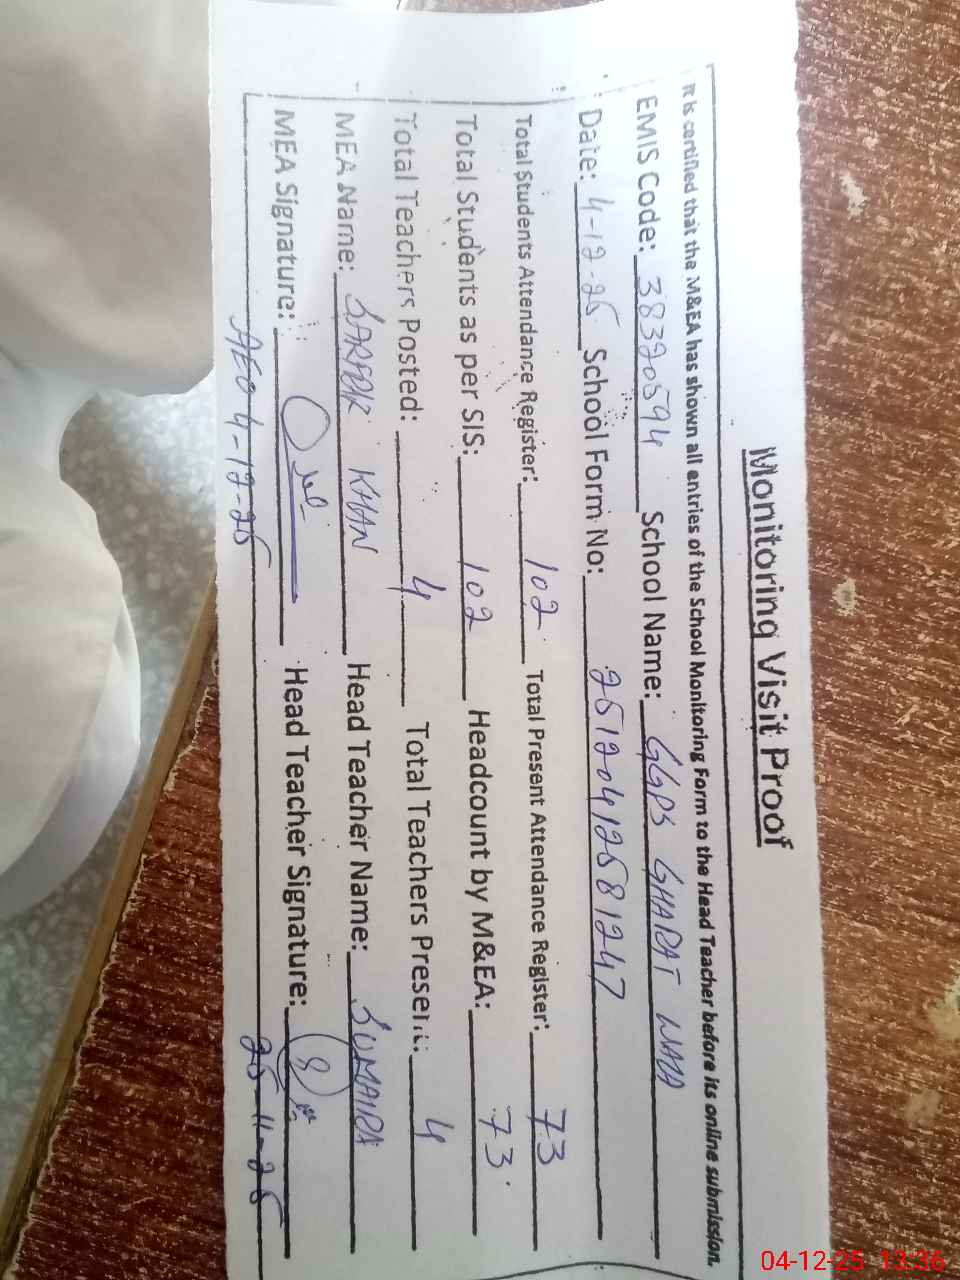 Monitoring Visit Proof
It is certified that the M&EA has shown all entries of the School Monitoring Form to the Head Teacher before its online submission.
EMIS Code: 38320594 School Name: GGPS GHARAT WALA
Date: 4-12-25 School Form No: 2512041258 1247
Total Students Attendance Register: 102 Total Present Attendance Register: 73
Total Students as per SIS: 102 Headcount by M&EA: 73
Total Teachers Posted: 4 Total Teachers Present: 4
MEA Name: SARFRAZ KHAN Head Teacher Name: SUMAIRA
MEA Signature: Head Teacher Signature:
AEO 4-12-25 25-11-25
04-12-25 13:36